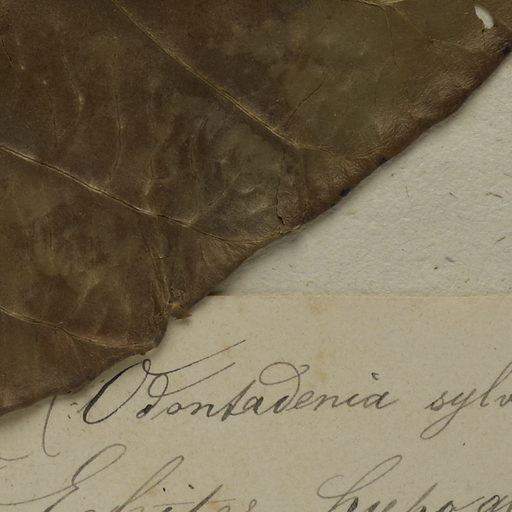 Odontadenia sylv
Echites hypog